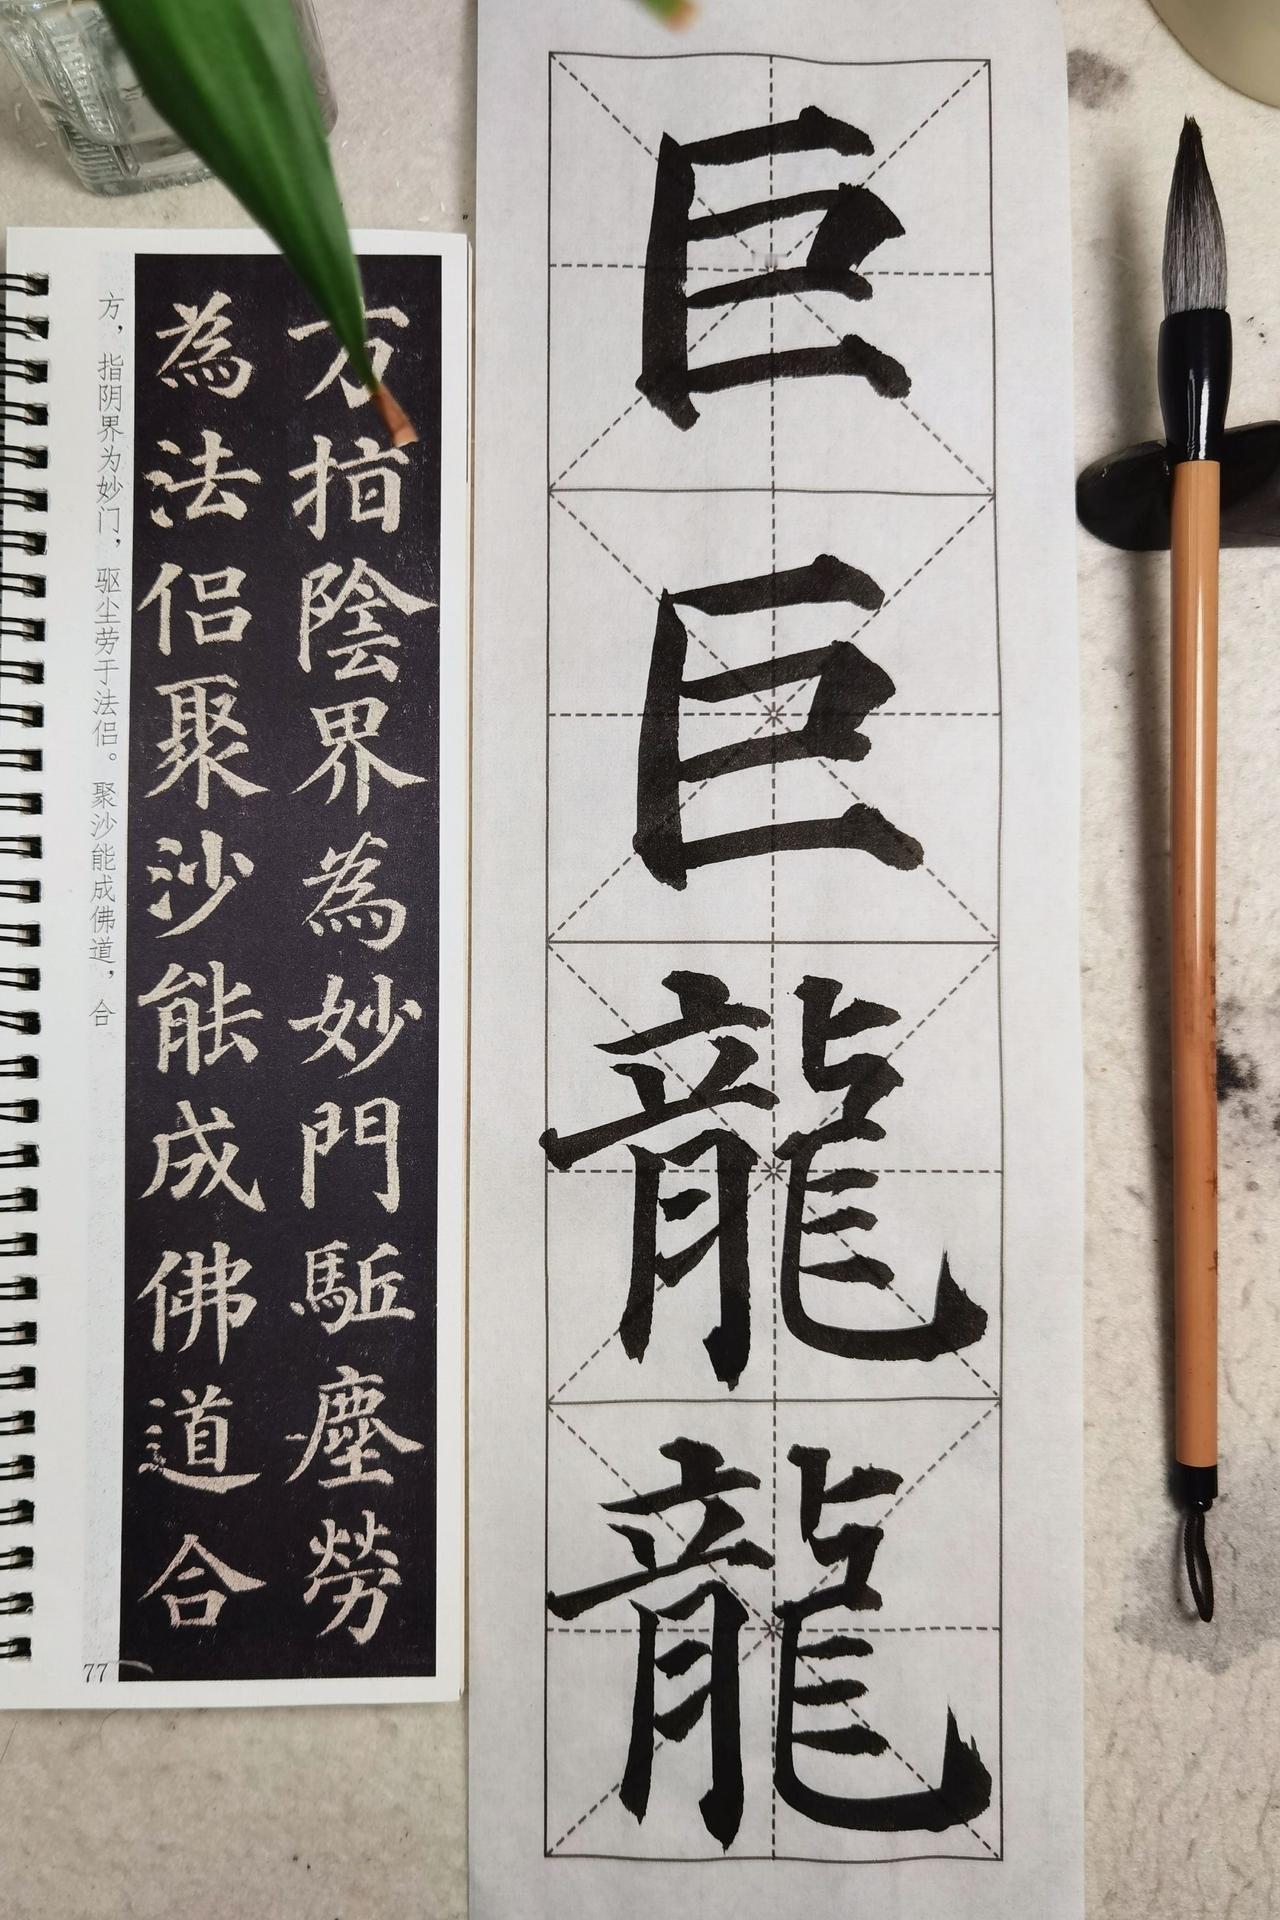 巨巨龍龍
方指陰界為妙門駈塵勞
為法侶聚沙能成佛道合
方，指阴界为妙门，驱尘劳于法侣。聚沙能成佛道，合
77